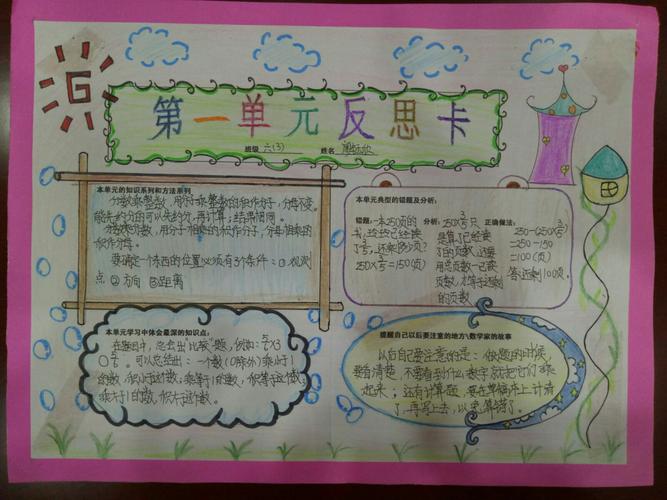 第一单元反思卡
班级 六(3) 姓名
本单元的知识系列和方法系列
分数乘整数,用分子乘整数的积作分子,分母不变。
能先约分的可以先约分,再计算,结果相同。
分数乘分数,用分子相乘的积作分子,分母相乘的
积作分母。
要确定一个东西的位置必须有3个条件:①观测
点 ②方向 ③距离
本单元典型的错题及分析:
错题:一本250页的
书,已经读了
3/5,还剩多少页?
250×3/5=150(页)
分析:250×3/5只
是算了已经读
了的页数,还要
用总页数-已读
页数,才等于还剩
的页数
正确做法:
250-(250×3/5)
=250-150
=100(页)
答:还剩100页。
本单元学习中体会最深的知识点:
在题目中,总会出比较题,例如:
可以总结出:一个数(0除外)乘小于1
的数,积小于这个数,乘等于1的数,积等于这个数;
乘大于1的数,积大于这个数。
提醒自己以后要注意的地方\数学家的故事
以后自己要注意的是:做题的时候
要看清楚,不要看到什么数字就把它们乘
起来;还有计算题,要在草稿本上计清
了,再写上去,以免算错了。